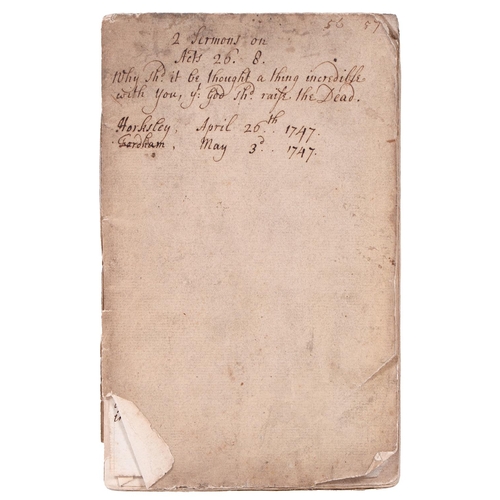 56 57
2 Sermons on
Acts 26. 8.
Why shd. it be thought a thing incredible
with you, yt. God shd. raise the Dead.
Horksley. April 26th 1747.
Fordham. May 3d. 1747.